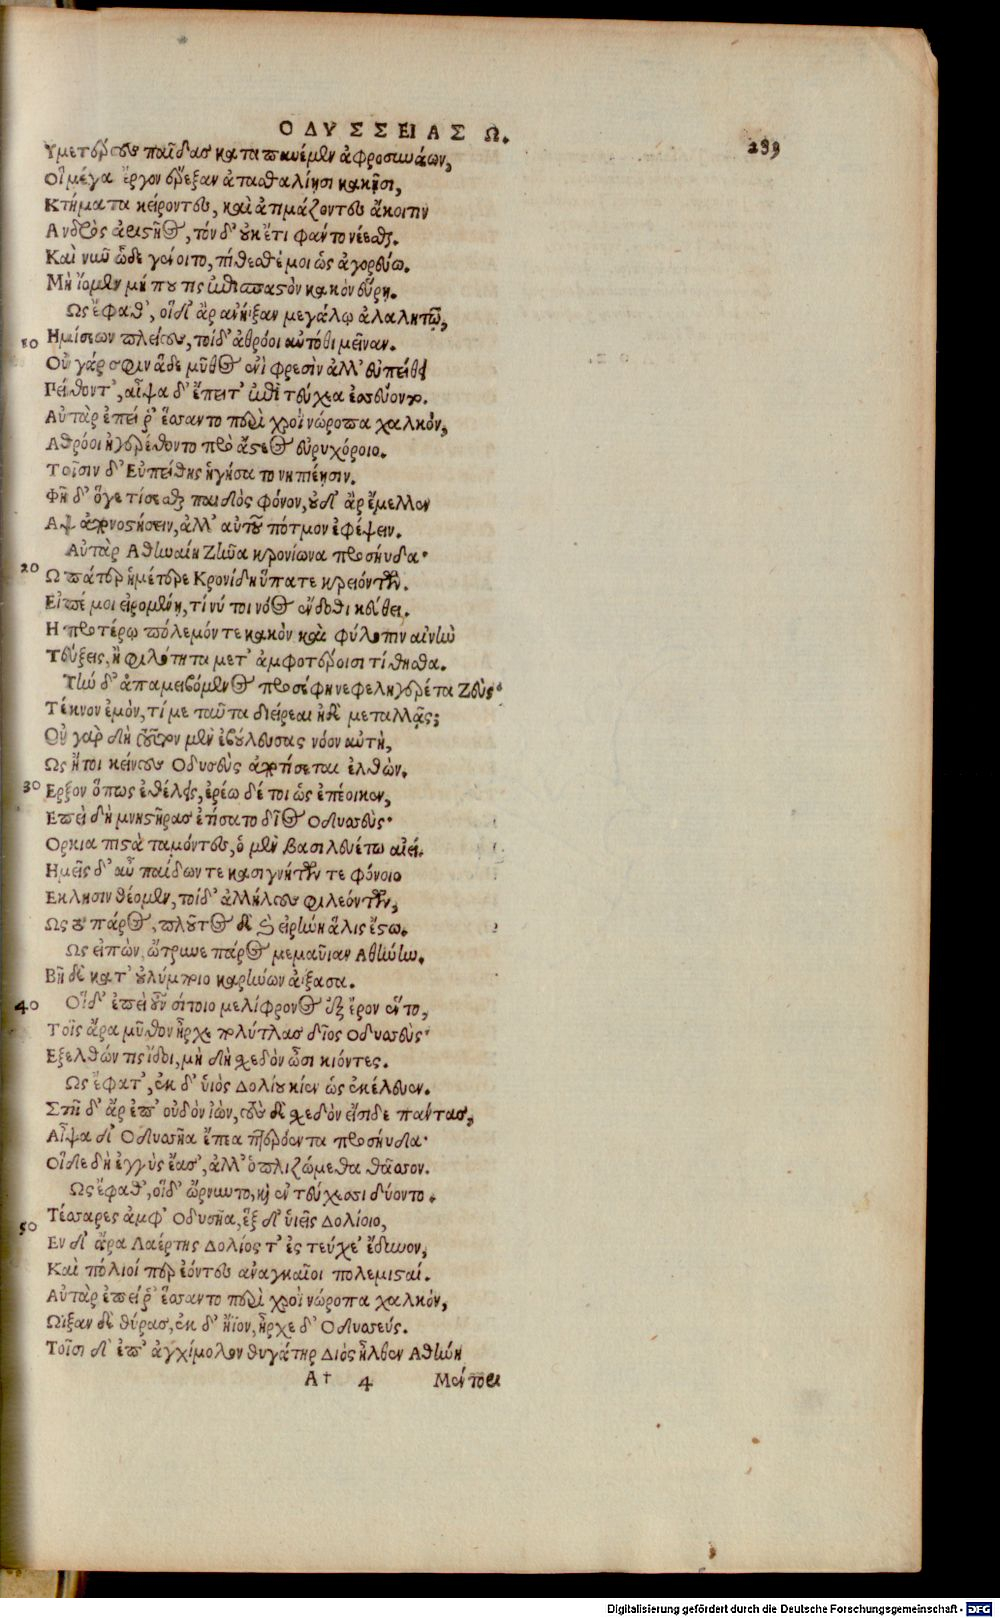 ΟΔΥΣΣΕΙΑΣ Ω.
239
Υμετέρους παῖδας καταπαυέμεν ἀφροσυνάων,
Οἳ μέγα ἔργον ἔρεξαν ἀτασθαλίησι κακῇσι,
Κτήματα κείροντες, καὶ ἀτιμάζοντες ἄκοιτιν
Ανδρὸς ἀριστῆος, τόν δ' οὐκ ἔτι φάντο νέεσθαι.
Καὶ νῦν ὧδε γένοιτο, πίθεσθέ μοι ὡς ἀγορεύω.
Μὴ ἴομεν μή πού τις ἐπίσπαστον κακὸν εὕρῃ.
Ως ἔφαθ', οἵδ' ἄρ ἀνήϊξαν μεγάλῳ ἀλαλητῷ,
Ημίσεων πλείους, τοίδ' ἀθρόοι αὐτόθι μεῖναν.
10
Οὐ γάρ σφιν ἅδε μῦθος ἐνὶ φρεσὶν ἀλλ' εὐπείθει
Πείθοντ', αἶψα δ' ἔπειτ' ἐπὶ τεύχεα ἐσσεύοντο.
Αὐτὰρ ἐπεί ῥ' ἕσσαντο περὶ χροῒ νώροπα χαλκόν,
Αθρόοι ἠγερέθοντο πρὸ ἄστεος εὐρυχόροιο.
Τοῖσιν δ' Εὐπείθης ἡγήσατο νηπιέῃσιν.
Φῆ δ' ὅγε τίσεσθαι παιδὸς φόνον, οὐδ' ἄρ ἔμελλεν
Αψ ἀπονοστήσειν, ἀλλ' αὐτοῦ πότμον ἐφέψειν.
Αὐτὰρ Αθηναίη Ζῆνα κρονίωνα προσηύδα·
20
Ω πάτερ ἡμέτερε Κρονίδη ὕπατε κρειόντων.
Εἰπέ μοι εἰρομένῃ, τί νύ τοι νόος ἔνδοθι κεύθει.
Η προτέρω πόλεμόν τε κακὸν καὶ φύλοπιν αἰνὴν
Τεύξεις, ἢ φιλότητα μετ' ἀμφοτέροισι τίθησθα.
Τὴν δ' ἀπαμειβόμενος προσέφη νεφεληγερέτα Ζεύς·
Τέκνον ἐμόν, τί με ταῦτα διείρεαι ἠδὲ μεταλλᾷς;
Οὐ γὰρ δὴ τοῦτον μὲν ἐβούλευσας νόον αὐτή,
Ως ἤτοι κείνους Οδυσεὺς ἀποτίσεται ἐλθών.
30
Ερξον ὅπως ἐθέλεις, ἐρέω δέ τοι ὡς ἐπέοικεν,
Επεὶ δὴ μνηστῆρας ἐτίσατο δῖος Οδυσσεύς·
Ορκια πιστὰ ταμόντες, ὁ μὲν βασιλευέτω αἰεί.
Ημεῖς δ' αὖ παίδων τε κασιγνήτων τε φόνοιο
Εκλησιν θέομεν, τοίδ' ἀλλήλους φιλεόντων,
Ως τὸ πάρος, πλοῦτος δὲ καὶ εἰρήνη ἅλις ἔστω.
Ως εἰπών, ὤτρυνε πάρος μεμαυῖαν Αθήνην.
Βῆ δὲ κατ' οὐλύμποιο καρήνων ἀΐξασα.
40
Οἵδ' ἐπεὶ οὖν σίτοιο μελίφρονος ἐξ ἔρον ἕντο,
Τοῖς ἄρα μῦθον ἦρχε πολύτλας δῖος Οδυσσεύς·
Εξελθών τις ἴδοι, μὴ δὴ σχεδὸν ὦσι κιόντες.
Ως ἔφατ', ἐκ δ' ὑιὸς Δολίου κίεν ὡς ἐκέλευεν.
Στῆ δ' ἄρ ἐπ' οὐδὸν ἰών, τοὺς δὲ σχεδὸν εἴσιδε πάντας,
Αἶψα δ' Οδυσσῆα ἔπεα πτερόεντα προσηύδα·
Οἵδε δὴ ἐγγὺς ἔασ', ἀλλ' ὁπλιζώμεθα θᾶσσον.
Ως ἔφαθ', οἵδ' ὤρνυντο, καὶ ἐν τεύχεσσι δύοντο.
Τέσσαρες ἀμφ' Οδυσῆα, ἓξ δ' ὑιεῖς Δολίοιο,
50
Εν δ' ἄρα Λαέρτης Δολίος τ' ἐς τεύχε' ἔδυνον,
Καὶ πολιοί περ ἐόντες ἀναγκαῖοι πολεμισταί.
Αὐτὰρ ἐπεί ῥ' ἕσσαντο περὶ χροῒ νώροπα χαλκόν,
Ωἶξαν δὲ θύρας, ἐκ δ' ἤϊον, ἦρχε δ' Οδυσσεύς.
Τοῖσι δ' ἐπ' ἀγχίμολον θυγάτηρ Διὸς ἦλθεν Αθήνη
Α† 4 Μέντορι
Digitalisierung gefördert durch die Deutsche Forschungsgemeinschaft - DFG